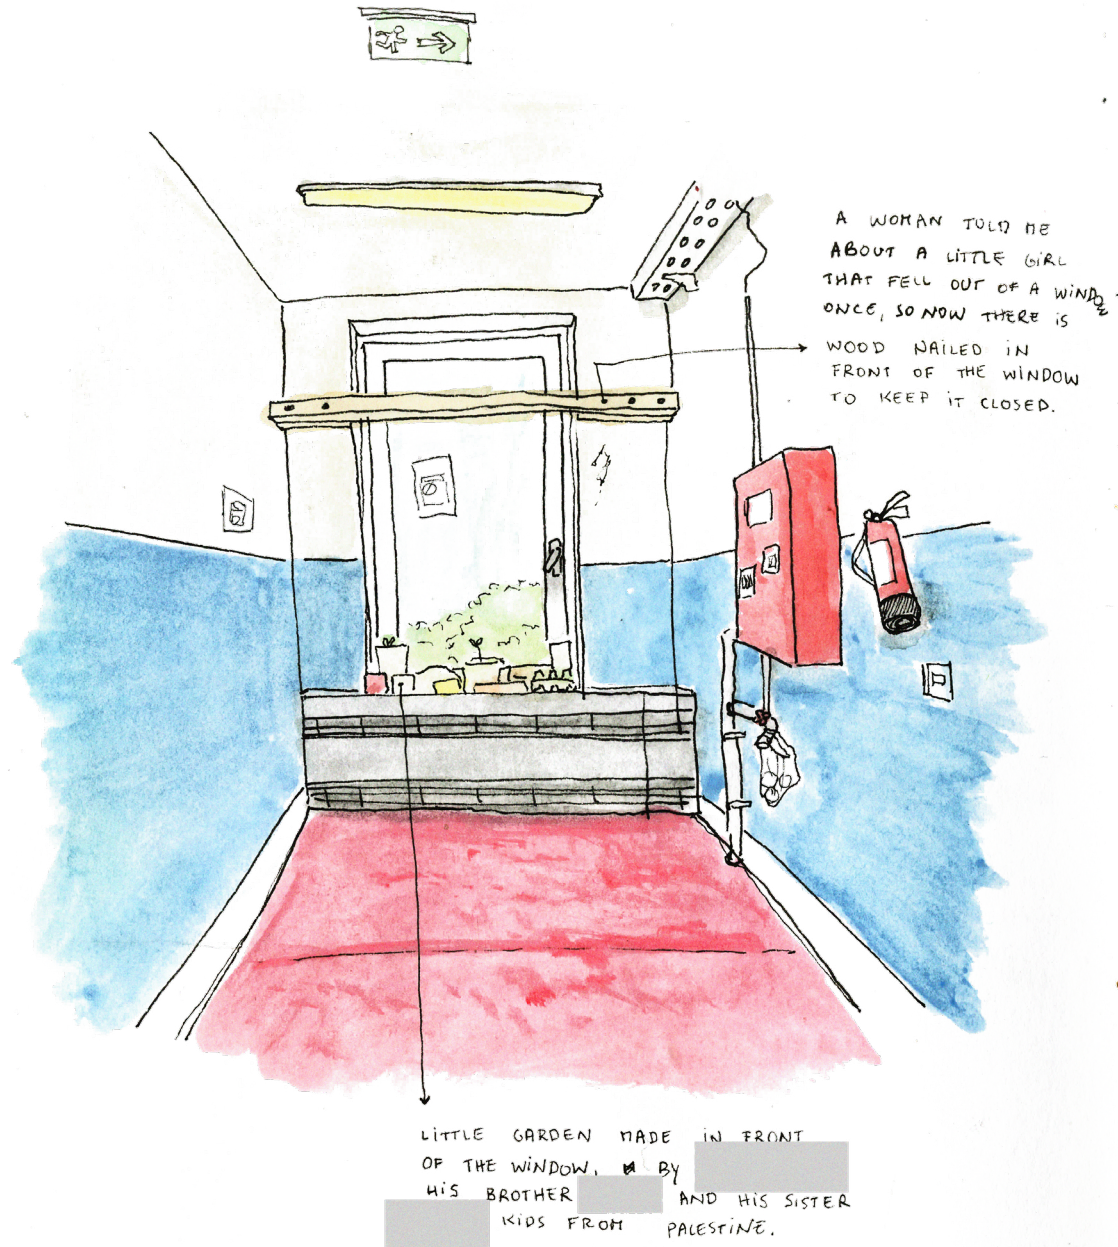 A WOMAN TOLD ME
ABOUT A LITTLE GIRL
THAT FELL OUT OF A WINDOW
ONCE, SO NOW THERE IS
WOOD NAILED IN
FRONT OF THE WINDOW
TO KEEP IT CLOSED.
LITTLE GARDEN MADE IN FRONT
OF THE WINDOW, BY
HIS BROTHER AND HIS SISTER
KIDS FROM PALESTINE.